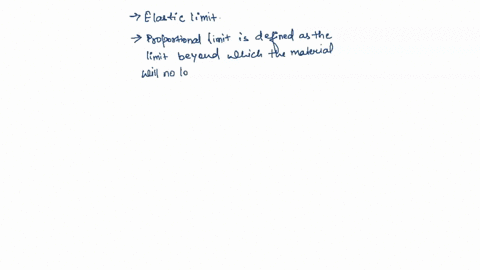 → Elastic limit.
→ Proportional limit is defined as the
limit beyond which the material
will no lo